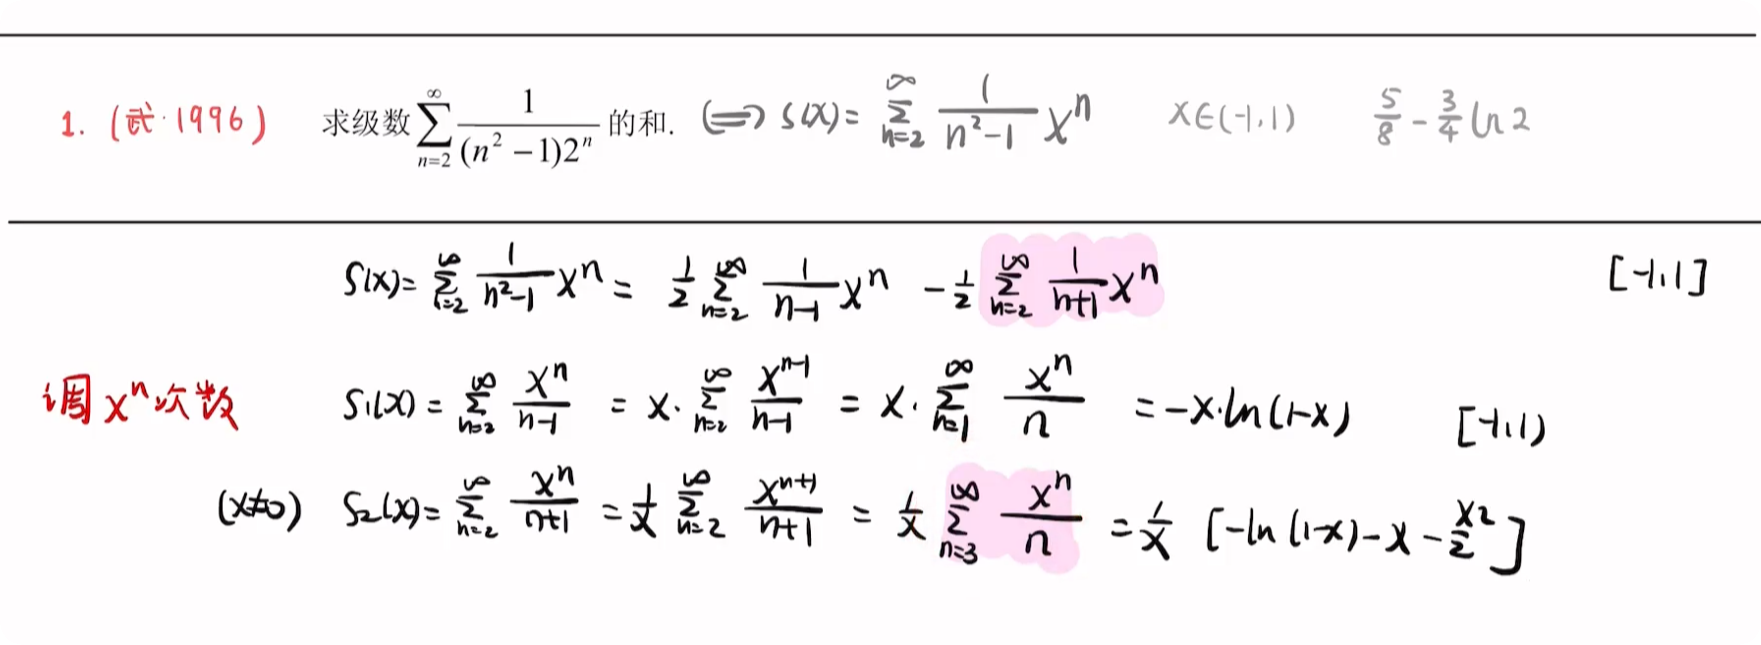 1. (武·1996) 求级数 ∑_{n=2}^{∞} 1/((n²-1)2ⁿ) 的和. (⟺) S(x)= ∑_{n=2}^{∞} 1/(n²-1) xⁿ x∈(-1,1) 5/8 - 3/4 ln 2
S(x)= ∑_{n=2}^{∞} 1/(n²-1) xⁿ = 1/2 ∑_{n=2}^{∞} 1/(n-1) xⁿ - 1/2 ∑_{n=2}^{∞} 1/(n+1) xⁿ [-1,1]
调xⁿ次数 S₁(x) = ∑_{n=2}^{∞} xⁿ/(n-1) = x· ∑_{n=2}^{∞} xⁿ⁻¹/(n-1) = x· ∑_{n=1}^{∞} xⁿ/n = -x·ln(1-x) [-1,1)
(x≠0) S₂(x)= ∑_{n=2}^{∞} xⁿ/(n+1) = 1/x ∑_{n=2}^{∞} xⁿ⁺¹/(n+1) = 1/x ∑_{n=3}^{∞} xⁿ/n = 1/x [-ln(1-x)-x-x²/2]